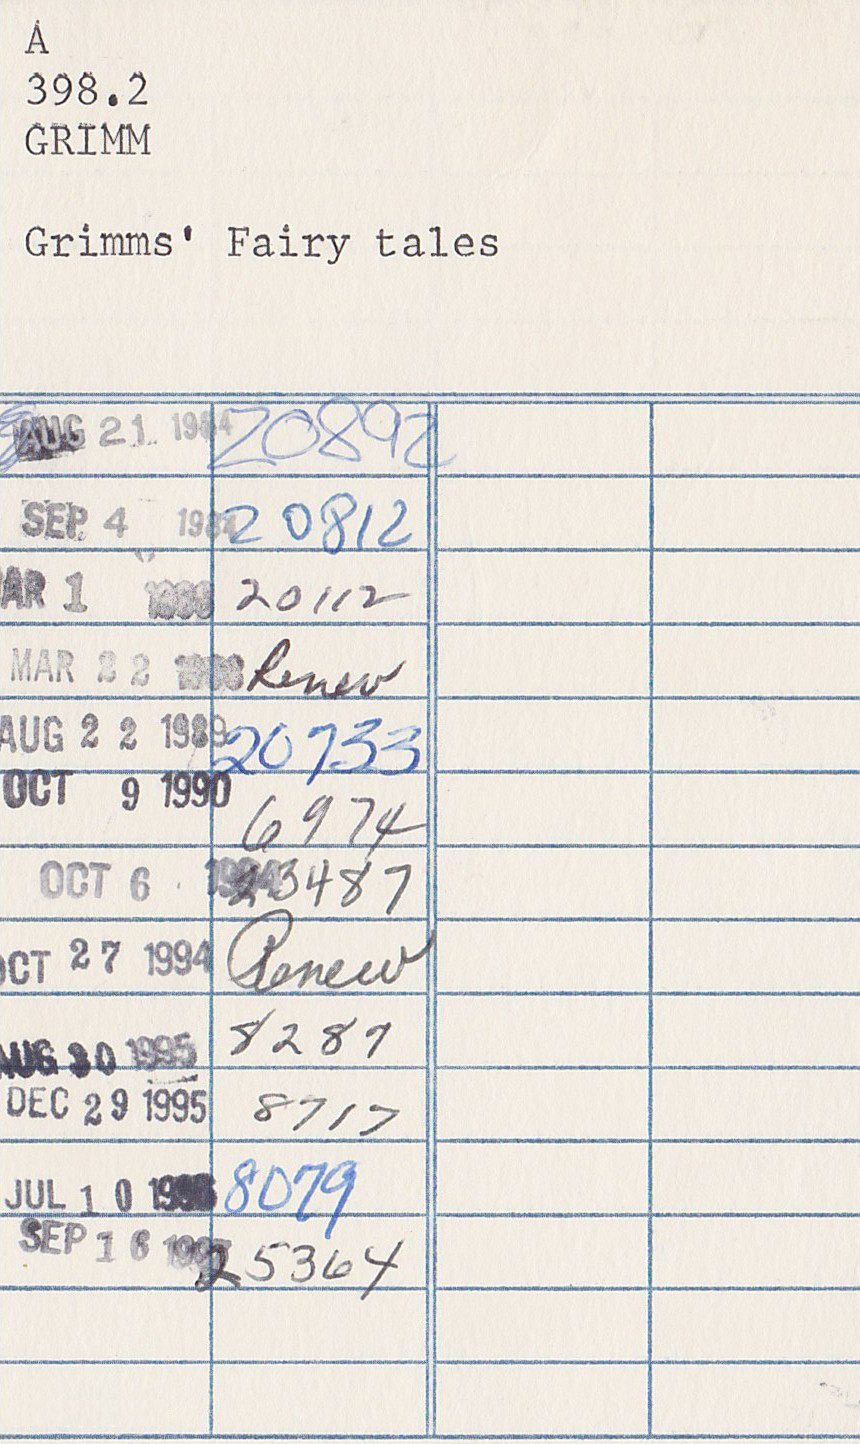 A
398.2
GRIMM
Grimms' Fairy tales
AUG 21 1984 20892
SEP 4 20812
AR 1 20112
MAR 22 Renew
AUG 22 1989 20733
OCT 9 1990 6974
OCT 6 1994 23487
OCT 27 1994 Renew
AUG 30 1995 8287
DEC 29 1995 8717
JUL 10 8079
SEP 16 1997 25364